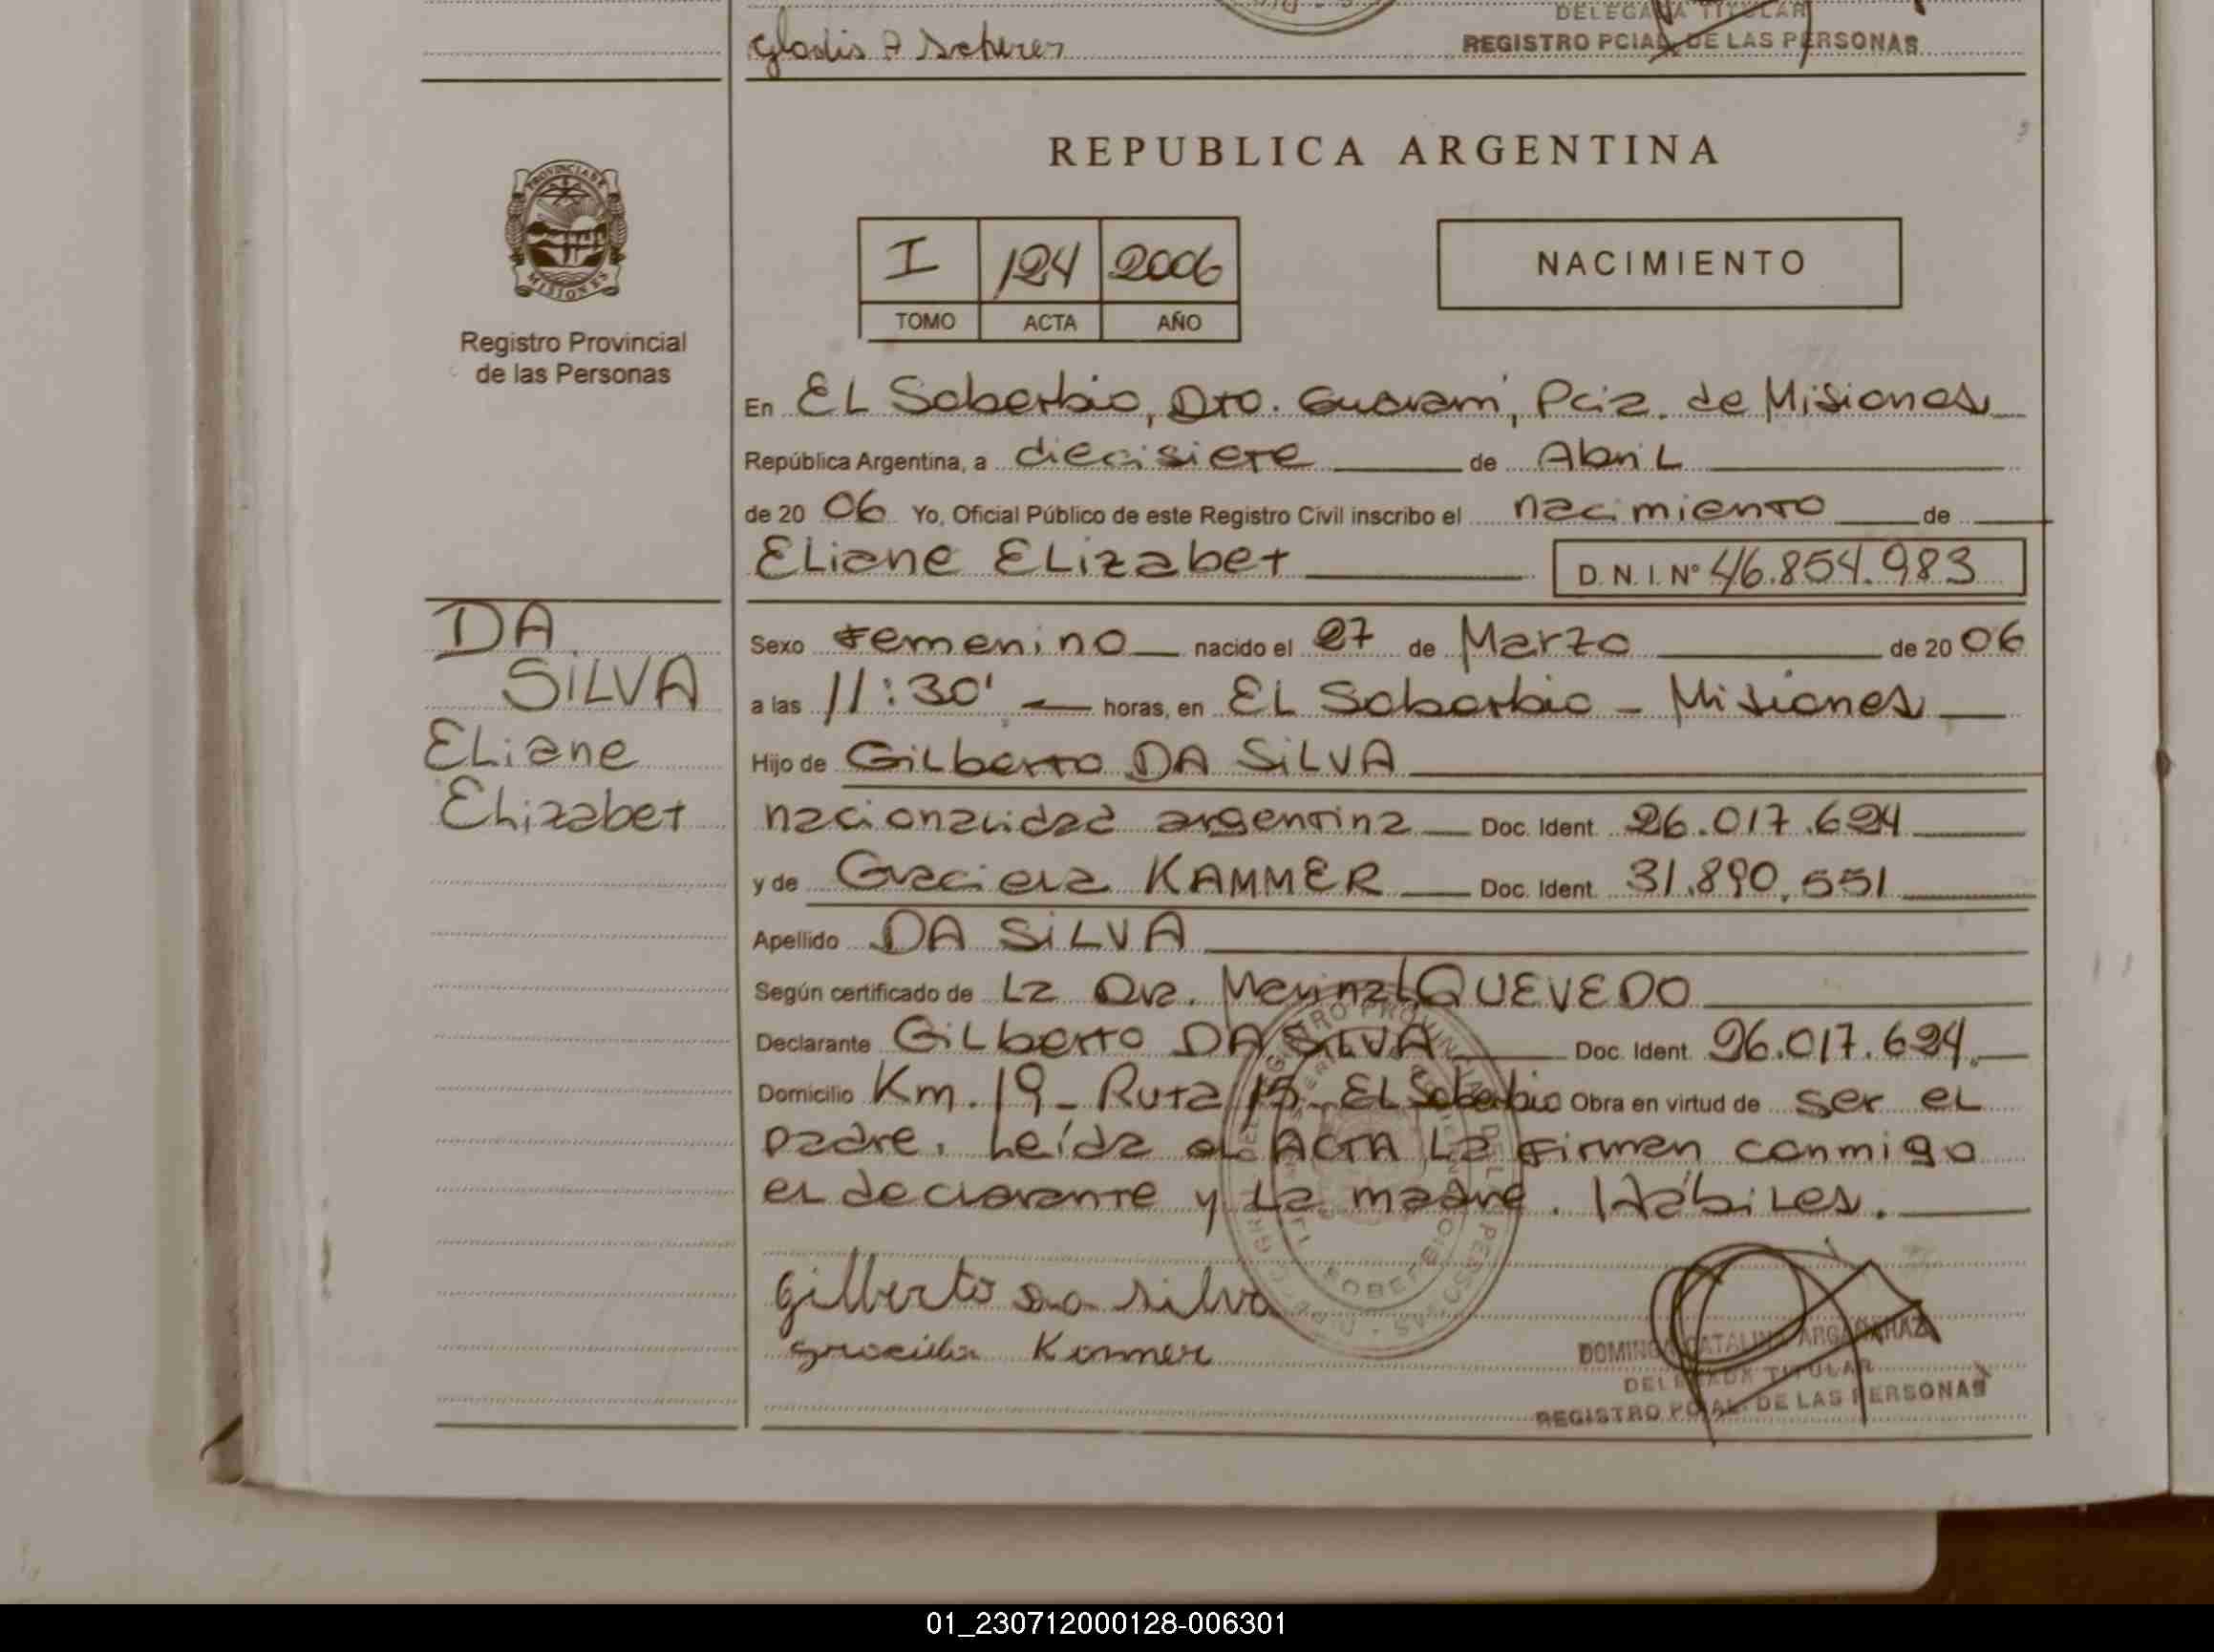 DELEGADA TITULAR
Gladis A Scherer
REGISTRO PCIAL DE LAS PERSONAS
PROVINCIA DE
MISIONES
Registro Provincial
de las Personas
REPUBLICA ARGENTINA
I 124 2006
TOMO ACTA AÑO
NACIMIENTO
En EL Soberbio, Dto. Guaraní, Pcia. de Misiones
República Argentina, a diecisiete de Abril
de 20 06 Yo, Oficial Público de este Registro Civil inscribo el nacimiento de
Eliane Elizabet D.N.I.Nº 46.854.983
DA
SILVA
Eliane
Elizabet
Sexo Femenino nacido el 27 de Marzo de 20 06
a las 11:30' horas, en EL Soberbio - Misiones
Hijo de Gilberto DA SILVA
nacionalidad argentina Doc. Ident. 26.017.624
y de Graciela KAMMER Doc. Ident. 31.890.551
Apellido DA SILVA
Según certificado de La Dra. Marina L QUEVEDO
Declarante Gilberto DA SILVA Doc. Ident. 26.017.624
Domicilio Km. 19 - Ruta 13 - EL Soberbio Obra en virtud de ser el
padre. Leída el ACTA La firman conmigo
el declarante y La madre. Hábiles.
gilberto da silva
graciela Kammer
DOMINGA CATALINA ARGAÑARAZ
DELEGADA TITULAR
REGISTRO PCIAL. DE LAS PERSONAS
01_230712000128-006301